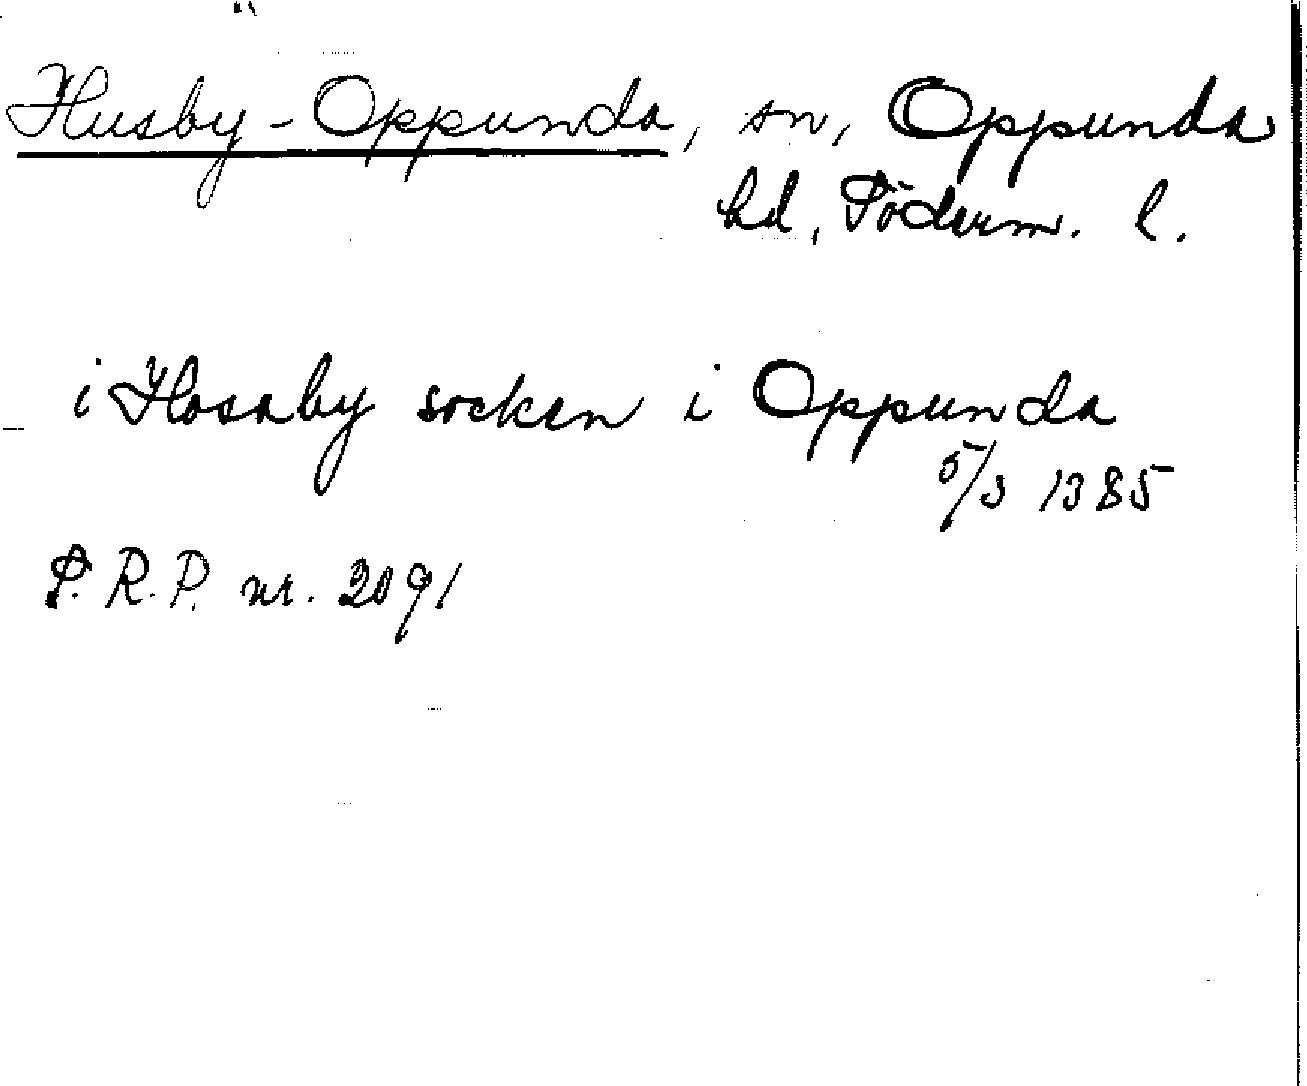 Husby-Oppunda, sn, Oppunda
hd, Söderm. l.
i Hosaby sockan i Oppunda
5/3 1385
S.R.P. nr. 2091